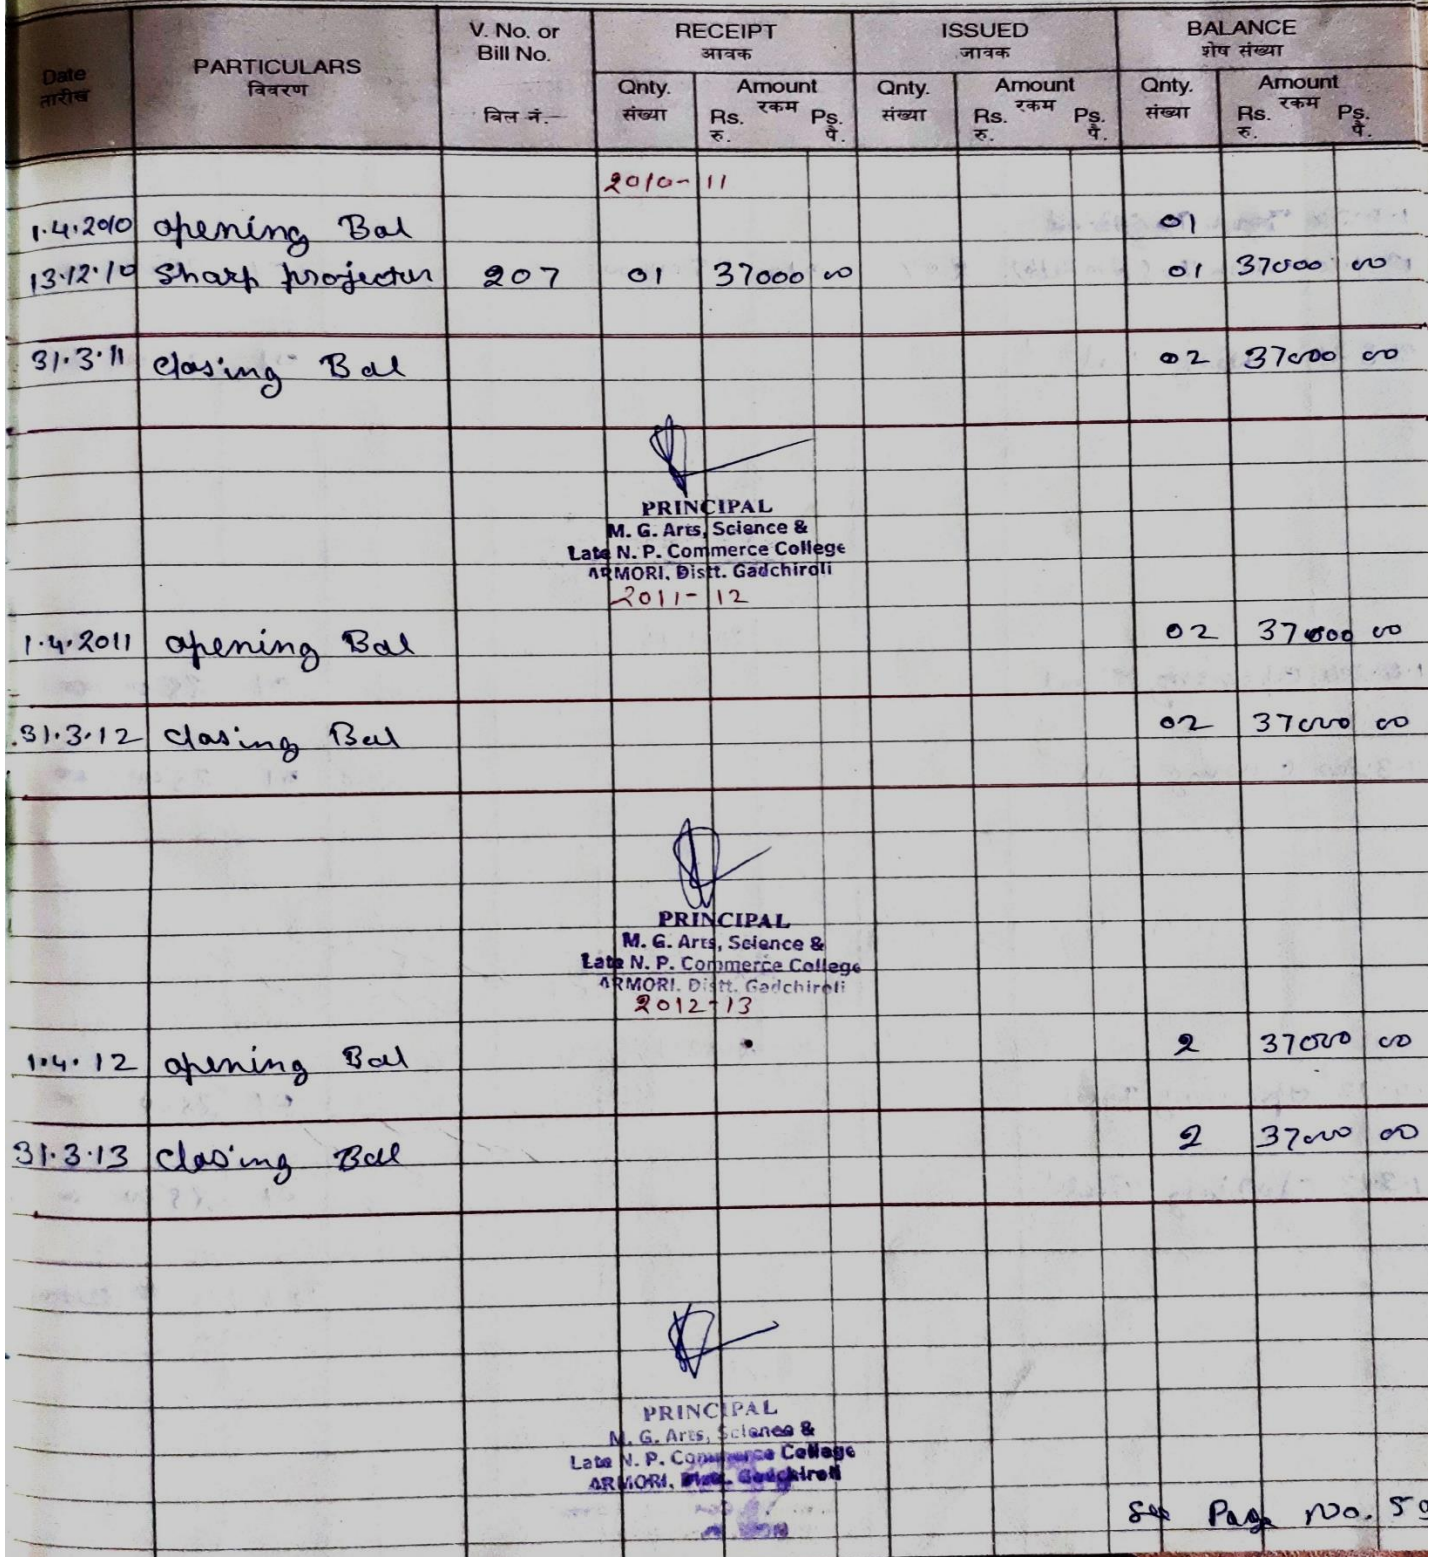 Date PARTICULARS V. No. or Bill No. RECEIPT ISSUED BALANCE
तारीख विवरण बिल नं. आवक जावक शेष संख्या
Qnty. Amount Qnty. Amount Qnty. Amount
संख्या Rs. रकम Ps. संख्या Rs. रकम Ps. संख्या Rs. रकम Ps.
रु. पै. रु. पै. रु. पै.
2010-11
1.4.2010 opening Bal 01
13.12.10 Sharp projector 207 01 37000 00 01 37000 00
31.3.11 closing Bal 02 37000 00
PRINCIPAL
M. G. Arts, Science &
Late N. P. Commerce College
ARMORI, Distt. Gadchiroli
2011-12
1.4.2011 opening Bal 02 37000 00
31.3.12 closing Bal 02 37000 00
PRINCIPAL
M. G. Arts, Science &
Late N. P. Commerce College
ARMORI. Distt. Gadchiroli
2012-13
1.4.12 opening Bal 2 37000 00
31.3.13 closing Bal 2 37000 00
PRINCIPAL
M. G. Arts, Science &
Late N. P. Commerce College
ARMORI, Distt. Gadchiroli
See Page No.